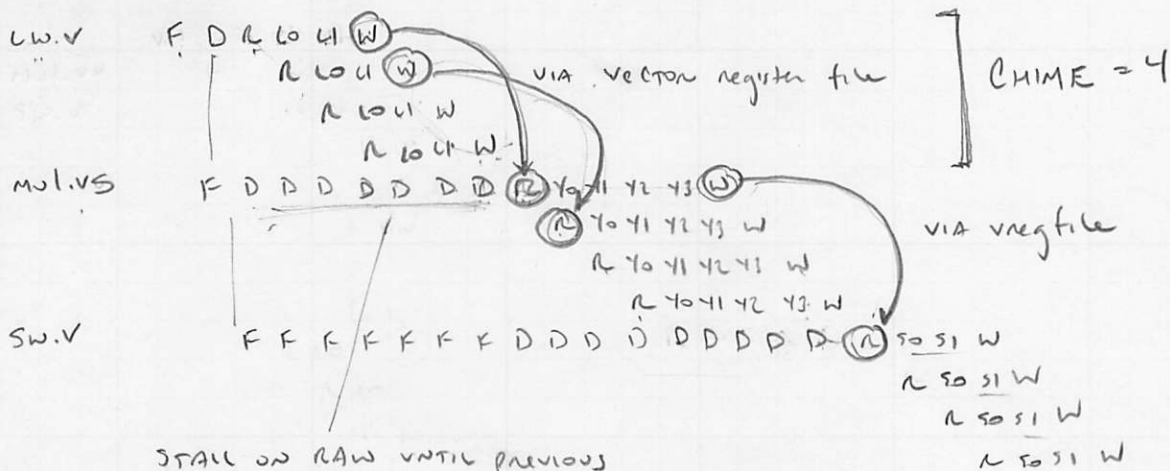 LW.V F D R L0 L1 W
R L0 L1 W VIA VECTOR register file CHIME = 4
R L0 L1 W
R L0 L1 W
MUL.VS F D D D D D D D R Y0 Y1 Y2 Y3 W
R Y0 Y1 Y2 Y3 W VIA vregfile
R Y0 Y1 Y2 Y3 W
R Y0 Y1 Y2 Y3 W
SW.V F F F F F F F D D D D D D D D D R S0 S1 W
R S0 S1 W
R S0 S1 W
STALL ON RAW UNTIL PREVIOUS R S0 S1 W